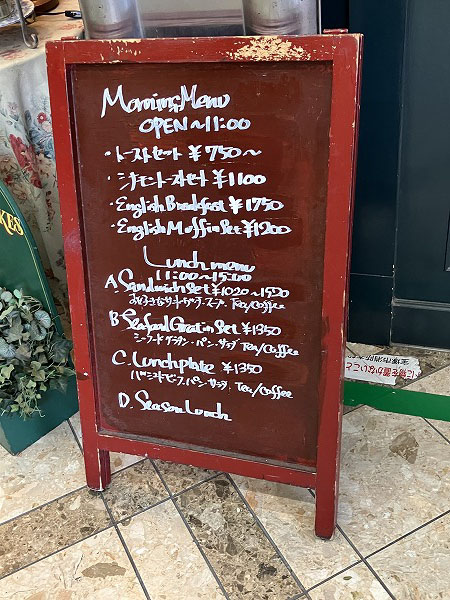 KES
Morning Menu
OPEN～11:00
・トーストセット ￥750～
・シナモントーストセット ￥1100
・English Breakfast ￥1750
・English Muffin Set ￥1200
Lunch menu
11:00～15:00
A. Sandwich Set ￥1020～1520
お好きなサンド・サラダ・スープ・Tea/Coffee
B. Seafood Gratin Set ￥1350
シーフードグラタン・パン・サラダ Tea/Coffee
C. Lunch plate ￥1350
パン・サラダ・Tea/Coffee
D. Season Lunch
に物を置かないこと
宝塚市消防